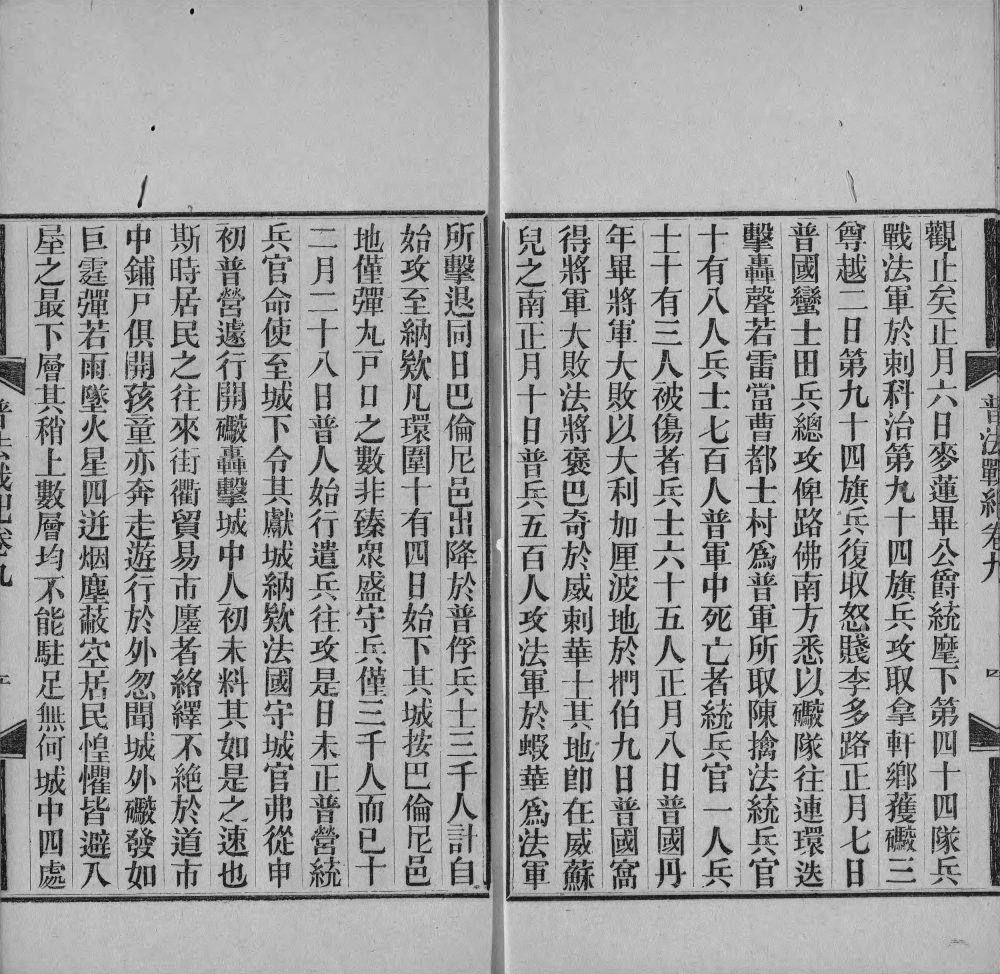 觀止矣正月六日麥蓮畢公爵統麾下第四十四隊兵
戰法軍於刺科治第九十四旗兵攻取拿軒鄉獲礮三
尊越二日第九十四旗兵復取怒賤李多路正月七日
普國蠻士田兵總攻俾路佛南方悉以礮隊往連環迭
擊轟聲若雷當曹都士村爲普軍所取陳擒法統兵官
十有八人兵士七百人普軍中死亡者統兵官一人兵
士十有三人被傷者兵士六十五人正月八日普國丹
年畢將軍大敗以大利加厘波地於捫伯九日普國窩
得將軍大敗法將褒巴奇於威刺華十其地卽在威蘇
兒之南正月十日普兵五百人攻法軍於蝦華爲法軍
普法戰紀卷九
所擊退同日巴倫尼邑出降於普俘兵士三千人計自
始攻至納欵凡環圍十有四日始下其城按巴倫尼邑
地僅彈丸戸口之數非臻衆盛守兵僅三千人而已十
二月二十八日普人始行遣兵往攻是日未正普營統
兵官命使至城下令其獻城納欵法國守城官弗從申
初普營遽行開礮轟擊城中人初未料其如是之速也
斯時居民之往來街衢貿易市廛者絡繹不絶於道市
中鋪戸俱開孩童亦奔走遊行於外忽聞城外礮發如
巨霆彈若雨墜火星四迸烟塵蔽空居民惶懼皆避入
屋之最下層其稍上數層均不能駐足無何城中四處
普法戰紀卷九